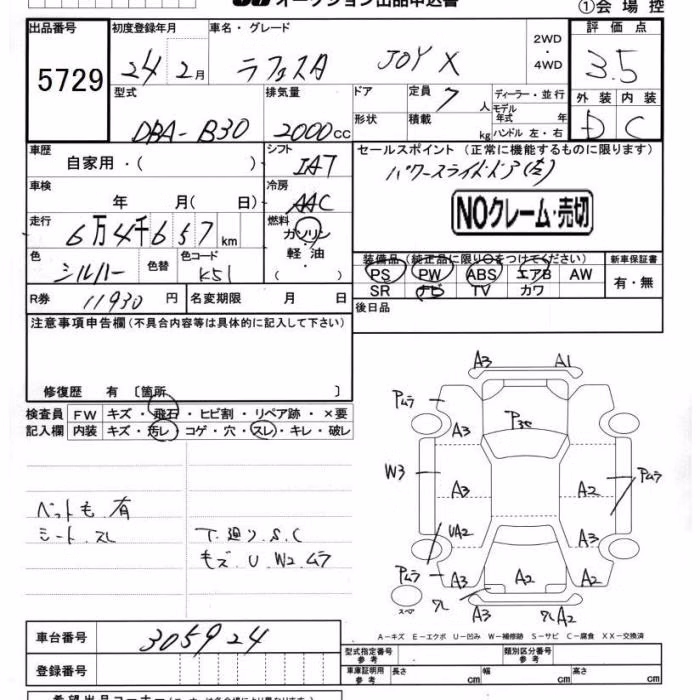 オークション出品申込書
①会場控
出品番号
5729
初度登録年月
24 2月
車名・グレード
ラフェスタ JOY X
2WD
・
4WD
評価点
3.5
型式
DBA-B30
排気量
2000cc
ドア
定員 7人
形状
積載 kg
ディーラー・並行
モデル年式 年
ハンドル 左・右
外装 内装
D C
車歴
自家用・( )
シフト
IAT
車検
年 月( 日)
冷房
AAC
走行
6万4千657km
燃料
ガソリン
・
軽油
・
( )
色
シルバー
色替
色コード
K51
R券 11930円
名変期限 月 日
セールスポイント(正常に機能するものに限ります)
パワースライドドア(左)
NOクレーム・売切
装備品(純正品に限り○をつけてください)
PS PW ABS エアB AW
SR ナビ TV カワ
新車保証書
有・無
後日品
注意事項申告欄(不具合内容等は具体的に記入して下さい)
修復歴 有 〔箇所 〕
検査員記入欄
FW キズ・飛石・ヒビ割・リペア跡・×要
内装 キズ・汚レ・コゲ・穴・スレ・キレ・破レ
ペットも有
シート.スレ
下廻り.S.C
キズ.U.W2.ムラ
A3 A1
Pムラ
A3
P3C
W3
A3 A2
Pムラ
UA2
A3
Pムラ
A3 A2 A2
スペア
ワレ
A3
ワレA2
A-キズ E-エクボ U-凹み W-補修跡 S-サビ C-腐食 XX-交換済
車台番号
305924
登録番号
型式指定番号 参考
類別区分番号 参考
車庫証明用 参考
長さ cm 幅 cm 高さ cm
希望出品コーナー